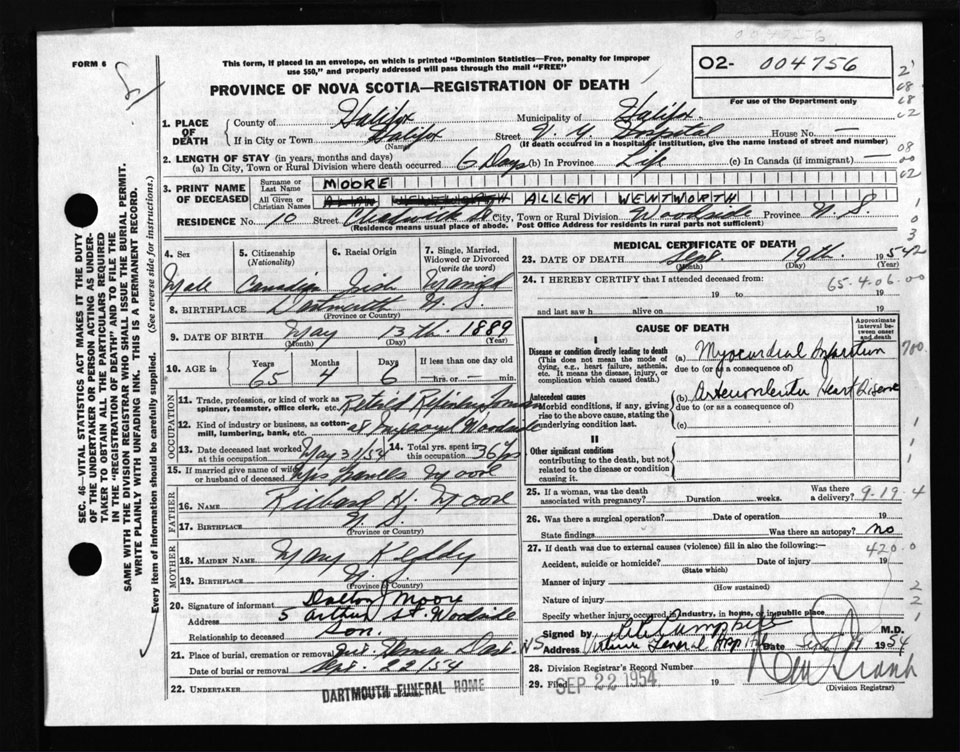 FORM 6
This form, if placed in an envelope, on which is printed "Dominion Statistics—Free, penalty for improper
use $50," and properly addressed will pass through the mail "FREE"
PROVINCE OF NOVA SCOTIA—REGISTRATION OF DEATH
02- 004756
For use of the Department only
1. PLACE OF DEATH
County of Halifax
Municipality of Halifax
If in City or Town Halifax
(Name)
Street V. G. Hospital House No. —
(If death occurred in a hospital or institution, give the name instead of street and number)
2. LENGTH OF STAY (in years, months and days)
(a) In City, Town or Rural Division where death occurred 6 Days (b) In Province Life (c) In Canada (if immigrant) —
3. PRINT NAME OF DECEASED
Surname or Last Name MOORE
All Given or Christian Names ALLEN WENTWORTH
RESIDENCE No. 10 Street City, Town or Rural Division Woodside Province N. S.
(Residence means usual place of abode. Post Office Address for residents in rural parts not sufficient)
4. Sex
Male
5. Citizenship
(Nationality)
Canadian
6. Racial Origin
Irish
7. Single, Married, Widowed or Divorced
(write the word)
Married
8. BIRTHPLACE Dartmouth N. S.
(Province or Country)
9. DATE OF BIRTH May 13th. 1889
(Month) (Day) (Year)
10. AGE in
Years Months Days If less than one day old
65 4 6 hrs. or — min.
OCCUPATION
11. Trade, profession, or kind of work as
spinner, teamster, office clerk, etc. Retired Refinery
12. Kind of industry or business, as cotton-
mill, lumbering, bank, etc. Woodside
13. Date deceased last worked
at this occupation May 31/54
14. Total yrs. spent in
this occupation 36 yrs
15. If married give name of wife
or husband of deceased Mrs Moore
FATHER
16. NAME Richard H. Moore
17. BIRTHPLACE N. S.
(Province or Country)
MOTHER
18. MAIDEN NAME Mary Keddy
19. BIRTHPLACE N. S.
(Province or Country)
20. Signature of informant Dalton J Moore
Address 5 Arthur St. Woodside
Relationship to deceased Son.
21. Place of burial, cremation or removal Mt. Hermon Dart.
Date of burial or removal Sept. 22/54
22. UNDERTAKER DARTMOUTH FUNERAL HOME
MEDICAL CERTIFICATE OF DEATH
23. DATE OF DEATH Sept. 19th. 1954
(Month) (Day) (Year)
24. I HEREBY CERTIFY that I attended deceased from:
65-4-06-00
19 to 19
and last saw h alive on 19
CAUSE OF DEATH
Approximate interval between onset and death
I
Disease or condition directly leading to death
(This does not mean the mode of
dying, e.g., heart failure, asthenia,
etc. It means the disease, injury, or
complication which caused death.)
(a) Myocardial Infarction
due to (or as a consequence of)
Antecedent causes
Morbid conditions, if any, giving
rise to the above cause, stating the
underlying condition last.
(b) Arteriosclerotic Heart Disease
due to (or as a consequence of)
(c)
II
Other significant conditions
contributing to the death, but not
related to the disease or condition
causing it.
25. If a woman, was the death
associated with pregnancy? Duration weeks. Was there a delivery?
9-19-4
26. Was there a surgical operation? Date of operation 19
State findings Was there an autopsy? no
27. If death was due to external causes (violence) fill in also the following:—
420.0
Accident, suicide or homicide? Date of injury 19
(State which)
Manner of injury
(How sustained)
Nature of injury
Specify whether injury occurred in industry, in home, or in public place
Signed by Campbell M.D.
Address Victoria General Hosp Date Sept 1954
28. Division Registrar's Record Number
29. Filed SEP 22 1954 19
(Division Registrar)
SEC. 46—VITAL STATISTICS ACT MAKES IT THE DUTY
OF THE UNDERTAKER OR PERSON ACTING AS UNDER-
TAKER TO OBTAIN ALL THE PARTICULARS REQUIRED
IN THE "REGISTRATION OF DEATH" AND TO FILE THE
SAME WITH THE DIVISION REGISTRAR WHO SHALL ISSUE THE BURIAL PERMIT.
WRITE PLAINLY WITH UNFADING INK. THIS IS A PERMANENT RECORD.
Every item of information should be carefully supplied. (See reverse side for instructions.)